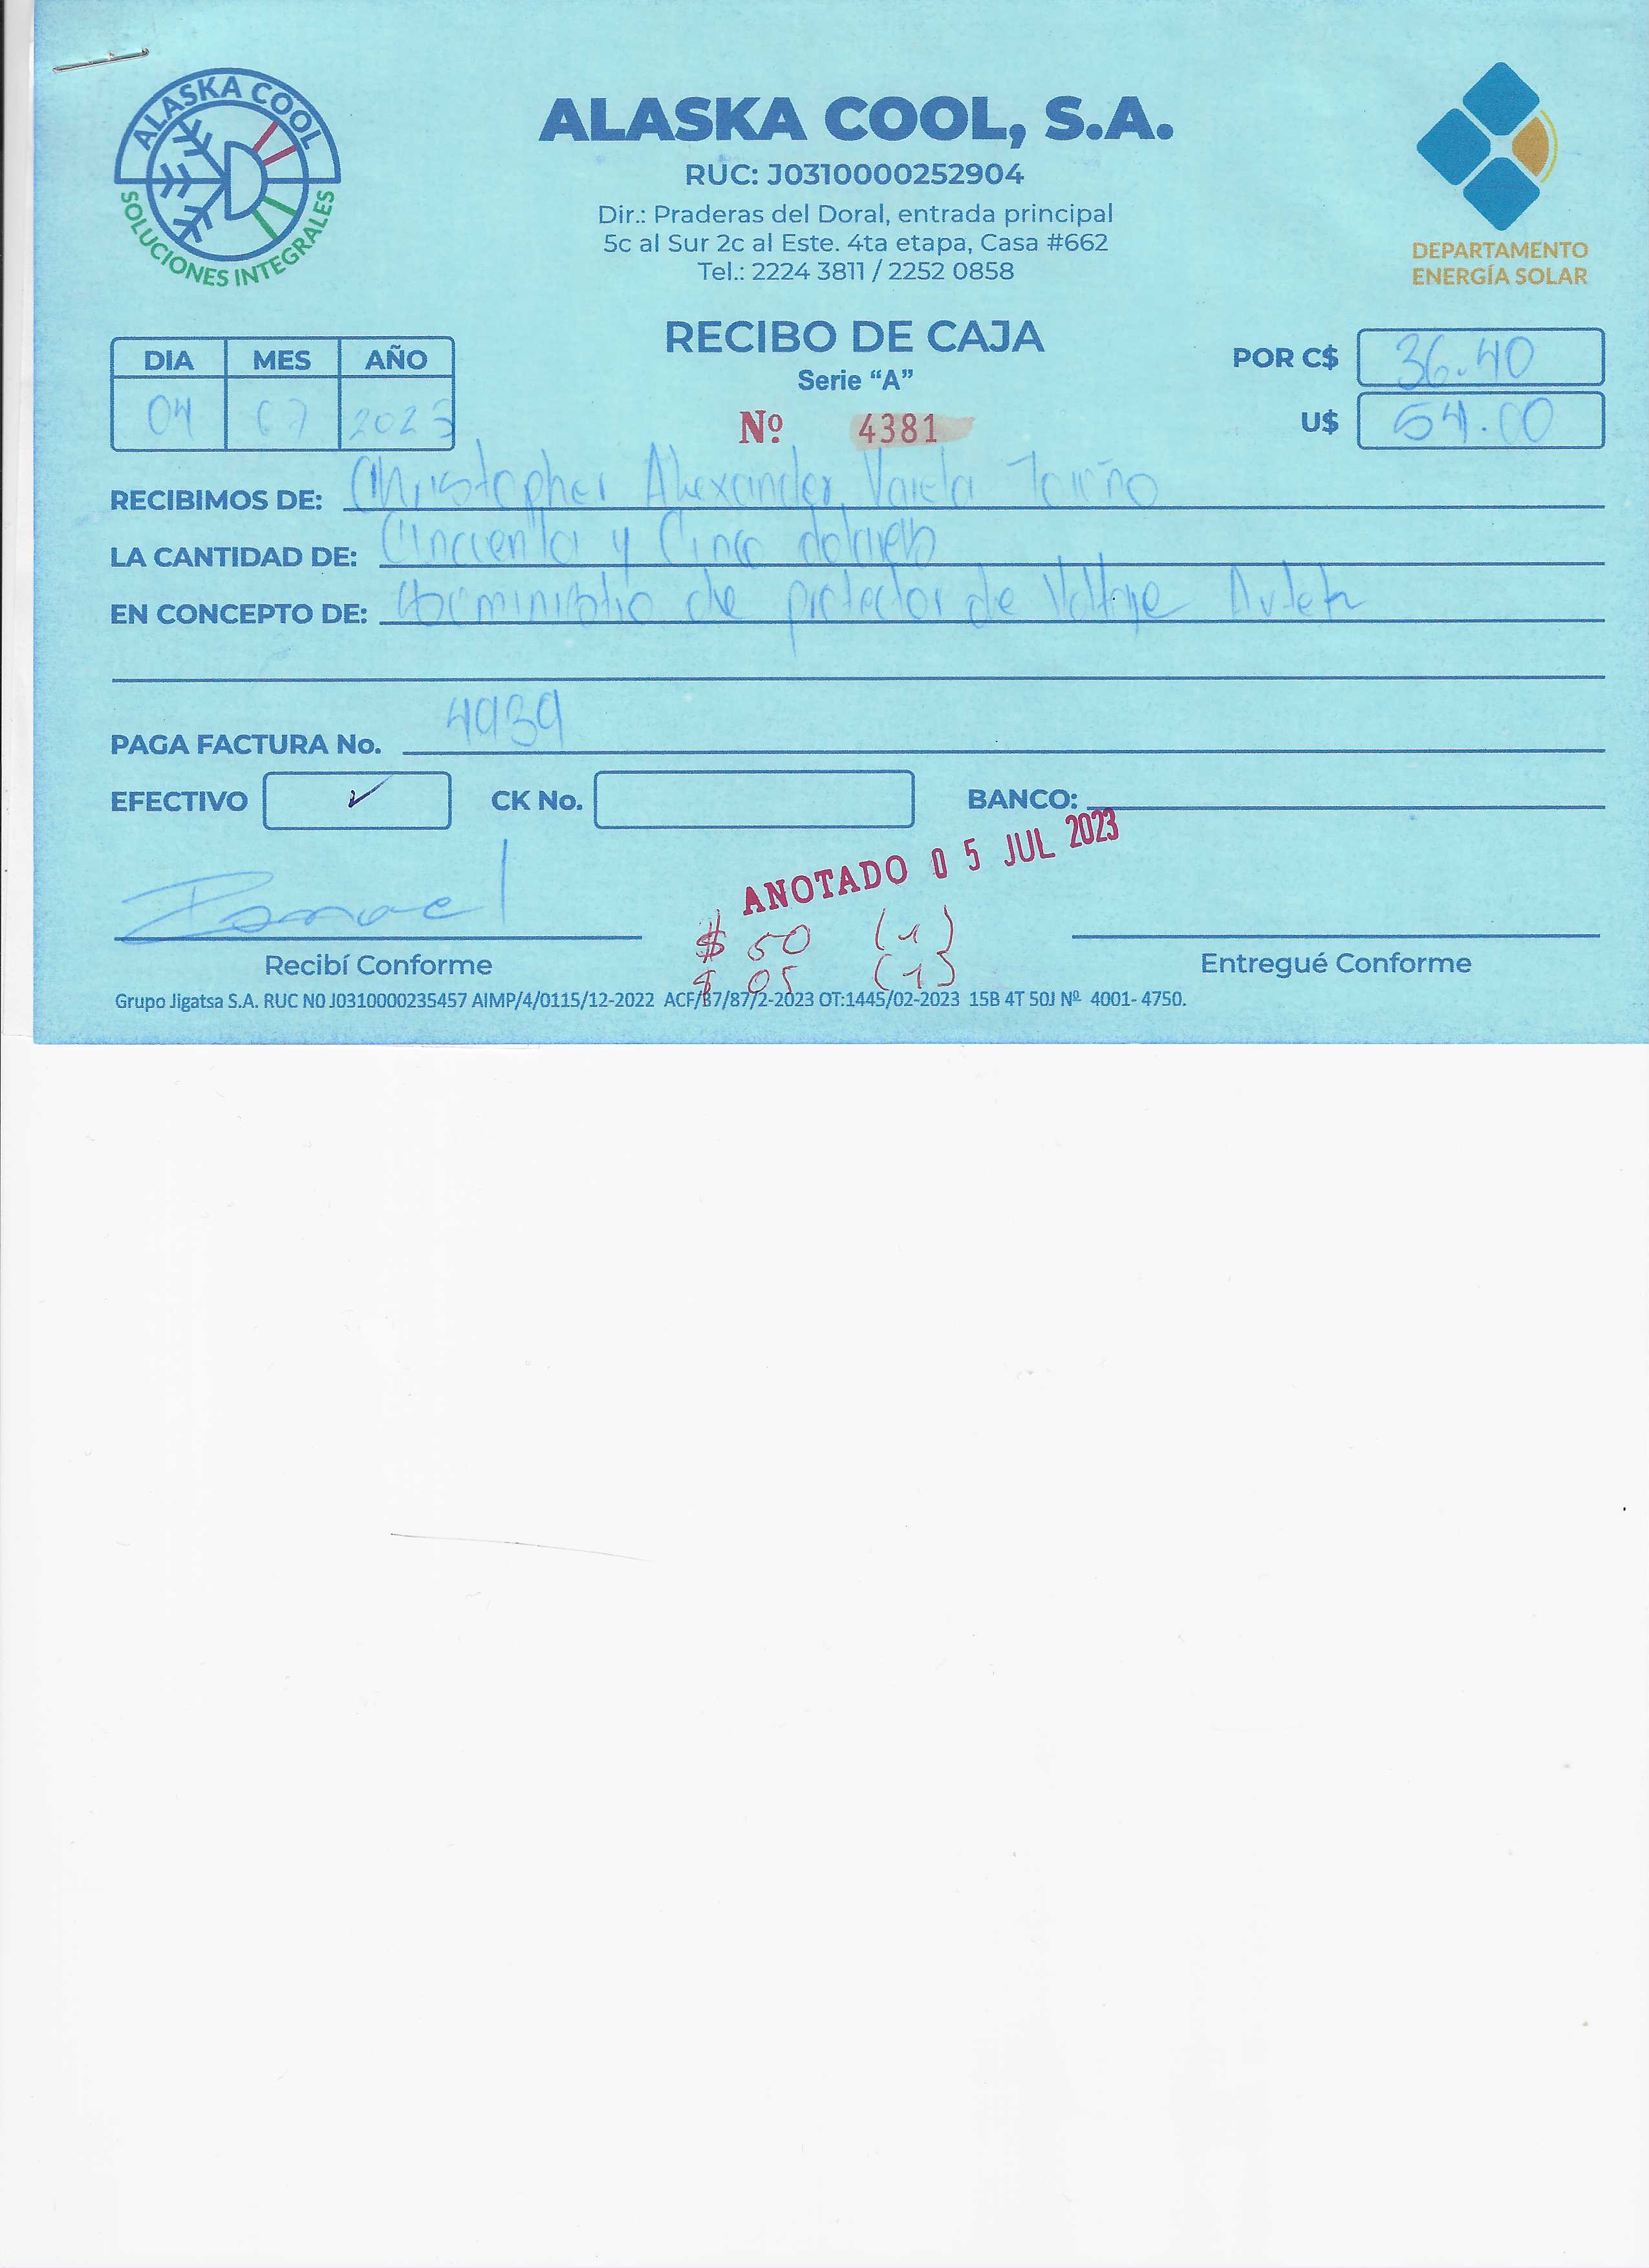 ALASKA COOL
SOLUCIONES INTEGRALES
ALASKA COOL, S.A.
RUC: J0310000252904
Dir.: Praderas del Doral, entrada principal
5c al Sur 2c al Este. 4ta etapa, Casa #662
Tel.: 2224 3811 / 2252 0858
DEPARTAMENTO
ENERGÍA SOLAR
RECIBO DE CAJA
Serie “A”
Nº 4381
DIA MES AÑO
04 07 2023
POR C$ 36.40
U$ 54.00
RECIBIMOS DE: Christopher Alexander Varela
LA CANTIDAD DE: Cincuenta y Cinco dolares
EN CONCEPTO DE: de protector de Voltage
PAGA FACTURA No. 4939
EFECTIVO ✓ CK No. BANCO:
ANOTADO 05 JUL 2023
$ 50 (1)
$ 05 (1)
Recibí Conforme
Entregué Conforme
Grupo Jigatsa S.A. RUC N0 J0310000235457 AIMP/4/0115/12-2022 ACF/87/87/2-2023 OT:1445/02-2023 15B 4T 50J Nº 4001- 4750.